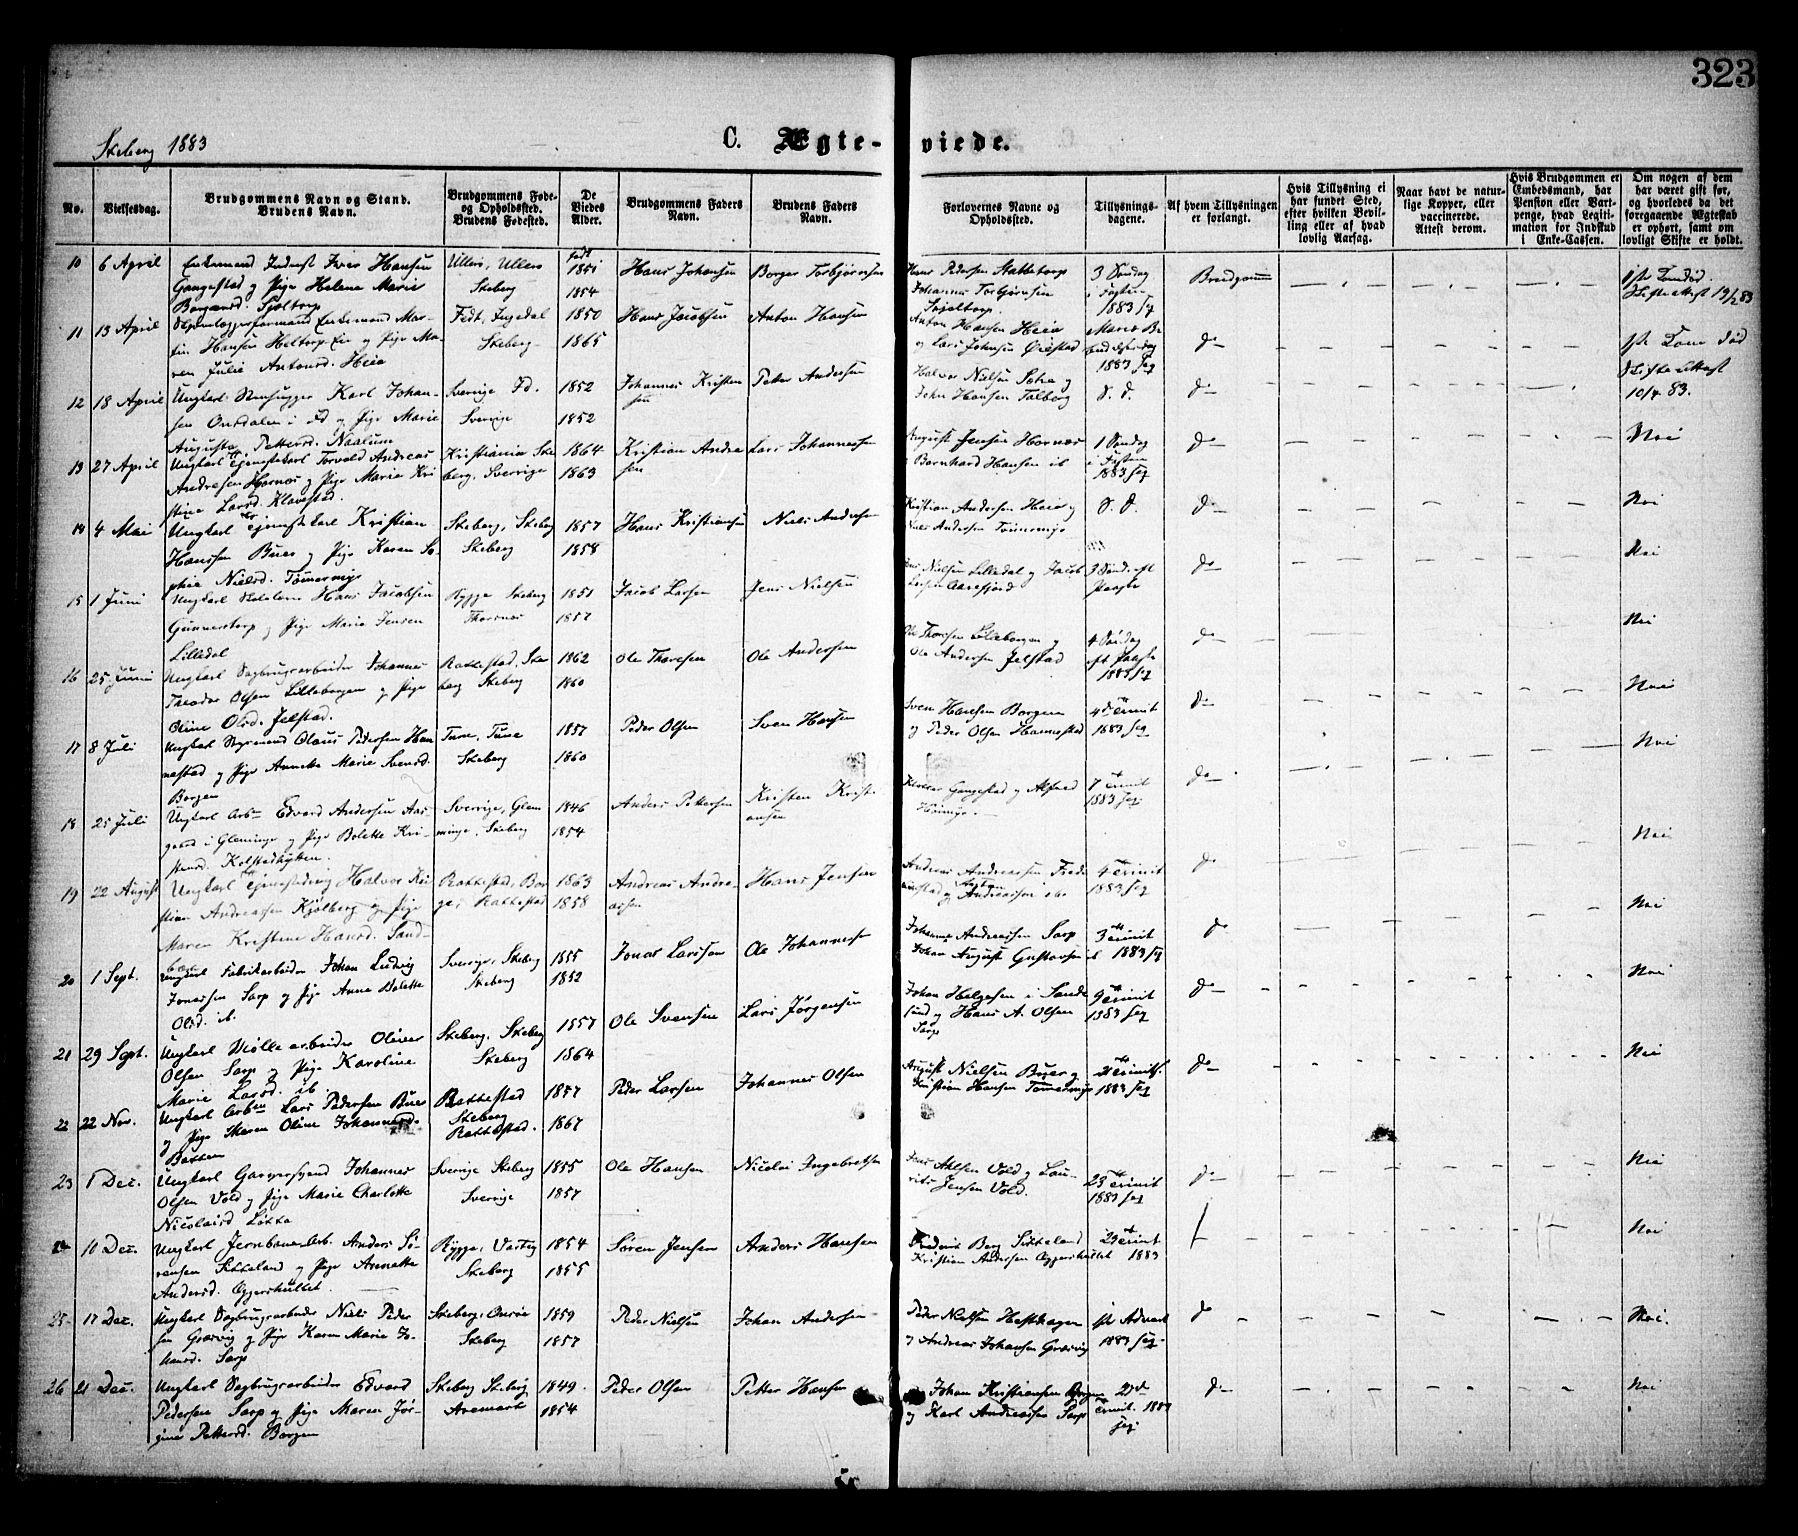 323
Skeberg 1883
C. Ægteviede.
No.
Vielsesdag.
Brudgommens Navn og Stand.
Brudens Navn.
Brudgommens Føde-
og Opholdssted.
Brudens Fødested.
De
Viedes
Alder.
Brudgommens Faders
Navn.
Brudens Faders
Navn.
Forlovernes Navne og
Opholdssted.
Tillysnings-
dagene.
Af hvem Tillysningen
er forlangt.
Hvis Tillysning ei
har fundet Sted,
efter hvilken Bevil-
ling eller af hvad
lovlig Aarsag.
Naar havt de natur-
lige Kopper, eller
vaccinerede.
Attest derom.
Hvis Brudgommen er
Embedsmand, har
Pension eller Vart-
penge, hvad Legiti-
mation for Indskud
i Enke-Cassen.
Om nogen af dem
har været gift før,
og hvorledes da det
forrgaaende Ægteskab
er ophørt, samt om
lovligt Skifte er holdt.
10 6 April
Enkemand Inderst Iver Hansen
Gangestad og Pige Helene Marie
Borgersd. Sjoltorp
Ullerø, Ullerø
Skeberg
født
1851
1854
Hans Johansen
Borger Torbjørnsen
Hans Pedersen Hattetorp
Johannes Torbjørnsen
Sojoltorp.
3 Søndag
i Fasten
1883
Brudgommen
Skifteattest 13/2 83
11 13 April
Enkemand Mar-
tin Hansen Heltorp Eie og Pige Ma-
ren Julie Antonsd. Heia
Fedt, Ingedal
Skeberg
1850
1865
Hans Jacobsen
Anton Hansen
Anton Hansen Heia
og Lars Johnsen Ørebstad
1883
do
1ste Kone død
Skifteattest
10/4 83.
12 18 April
Ungkarl Stenhugger Karl Johan-
sen Onsdalen i Id og Pige Marie
Augusta Pettersd. Naalum
Sverrige Id.
Sverrige
1852
1852
Johannes Kristen
sen
Petter Andersen
Halvor Nielsen Sotra og
John Hansen Talberg
S. d.
do
Nei
13 27 April
Ungkarl Tjenestekarl Torvald Andreas
Andresen Hornes og Pige Marie Kri
stine Larsd. Klavestad.
Kristiania Ske
berg, Sverrige
1864
1863
Kristian Andre
sen
Lars Johannessen
August Jensen Hornæs
Bernhard Hansen ib
1 Søndag
i Fasten
1883
do
Nei
14 4 Mai
Ungkarl Tjenestekarl Kristian
Hanssen Buer og Pige Karen So
phie Nielsd. Tømmermyr
Skeberg, Skeberg
Skeberg
1857
1858
Hans Kristiansen
Niels Andersen
Kristian Andersen Heia og
Niels Andersen Tømmermyr
S. d.
do
Nei
15 1 Juni
Ungkarl Hans Jacobsen
Gunnerstorp og Pige Marie Jensen
Lilledal
Rygge Skeberg
Thorsnes
1851
1857
Jacob Larsen
Jens Nielsen
Jens Nielsen Lilledal og Jacob
Larsen Aarefjord
3 Sønd. eft
Paaske
do
Nei
16 25 Juni
Ungkarl Sagbrugsarbeider Johannes
Theodor Olsen Lilleborgen og Pige
Oline Olsd. Jelstad.
Rakkestad, Ske
berg Skeberg
1862
1860
Ole Thoresen
Ole Andersen
Ole Thoresen Lilleborgen og
Ole Andersen Jelstad
4 Søndag
eft Paaske
1883
do
Nei
17 8 Juli
Ungkarl Styrmand Olaus Pedersen Han
nestad og Pige Annette Marie Svensd.
Borgen
Tune, Tune
Skeberg
1857
1860
Peder Olsen
Sven Hansen
Sven Hansen Borgen
og Peder Olsen Hannestad
1883
do
Nei
18 25 Juli
Ungkarl Arbm Edvard Andersen Aar-
gaard i Glemminge og Pige Bolette Kri-
stensd. Kolstadhytten.
Sverrige, Glem
minge, Skeberg
1846
1854
Anders Pettersen
Kristen Kristi
ansen
Gangestad og Alfred
7 Trinit
1883
do
Nei
19 22 August
Ungkarl Halvor Kri
stian Andreassen Kjølberg og Pige
Maren Kristine Hansd. Sand-
bæk
Rakkestad, Bor
ge, Rakkestad
1863
1858
Andreas Andre-
assen
Hans Jensen
Andreas Andreassen Frede
rikstad og Anton Andreassen ibd
4 Trinit
1883
do
Nei
20 1 Sept.
Ungkarl Fabrikarbeider Johan Ludvig
Jonassen Sarp og Pige Anna Bolette
Olsd. ib.
Sverrige, Skeberg
Skeberg
1855
1852
Jonas Larsson
Ole Johannesen
Johannes Andreassen Sarp
Johan August Gustavsen ib
3 Trinit
1883
do
Nei
21 29 Sept.
Ungkarl Møllearbeider Oliver
Olsen Sarp og Pige Karoline
Marie Larsd. ib
Skeberg, Skeberg
Skeberg
1857
1864
Ole Svensen
Lars Jørgensen
Johan Helgesen i Sande
sund og Hans A. Olsen
Sarp
9 Trinit
1883
do
Nei
22 22 Nov.
Ungkarl Arbm Lars Pedersen Buer
og Pige Maren Oline Johannesd.
Bakken
Rakkestad
Skeberg
Rakkestad.
1857
1867
Peder Larsen
Johannes Olsen
August Nielsen Buer og
Kristian Hansen Tømmermyr
1883
do
Nei
23 1 Dec.
Ungkarl Garversvend Johannes
Olsen Vold og Pige Marie Charlotte
Nicolaisd Løkka
Sverrige Skeberg
Sverrige
1855
1857
Ole Hansen
Nicolai Ingebretsen
Jens Nilsen Vold og Lau-
rits Jensen Vold.
23 Trinit
1883
do
Nei
24 10 Dec.
Ungkarl Jernbane Arb. Anders Sø-
rensen Sikkeland og Pige Annette
Andersd. Aggershullet
Rygge, Varteig
Skeberg
1854
1855
Søren Jensen
Anders Hansen
Frederik Berg Sikkeland
Kristian Andersen Aggershullet
23 Trinit
1883
Nei
25 17 Dec.
Ungkarl Sagbrugsarbeider Niels Peder
sen Græsvig og Pige Karen Marie Jo-
hansd. Sarp
Skeberg, Onsøe
Skeberg
1859
1857
Peder Nielsen
Johan Andersen
Peder Nielsen Hesthagen
og Andreas Johansen Græsvig
1st Advent
1883
do
Nei.
26 21 Dec.
Ungkarl Sagbrugsarbeider Edvard
Pedersen Sarp og Pige Maren Jør-
gine Pettersd. Borgen
Skeberg Skeberg
Aremark
1849.
1854
Peder Olsen
Petter Hansen
Johan Kristiansen Borgen
og Karl Andreassen Sarp
Trinit. 1883
do
Nei